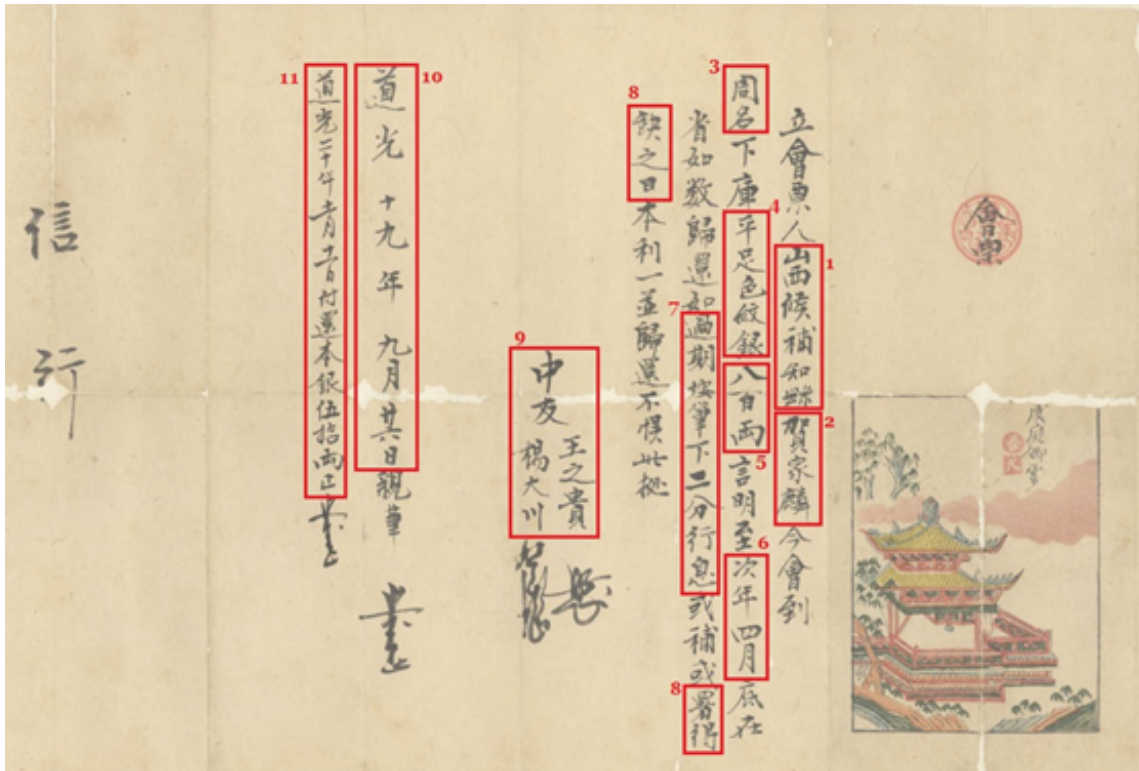 會票
立會票人山西候補知縣賀家麟今會到
周名下庫平足色紋銀八百両言明至次年四月底在
省如数歸還如過期按筆下二分行息或補或署得
缺之日本利一並歸還不悞此拠
中友
王之貴
楊大川
道光十九年九月廿六日親筆
付還本銀伍拾両正
信行
1
2
3
4
5
6
7
8
8
9
10
11